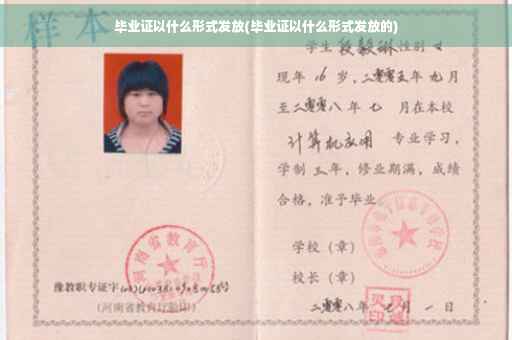 毕业证以什么形式发放(毕业证以什么形式发放的)
样本
学生 段毅琳 性别 女
现年 16 岁，二零零五年 九 月
至二零零八 年 七 月在本校
计算机应用 专业学习，
学制 三 年，修业期满，成绩
合格，准予毕业
学校（章）
校长（章）
二零零八年 七 月 一 日
河南省教育厅
豫教职专证字
(河南省教育厅验印)